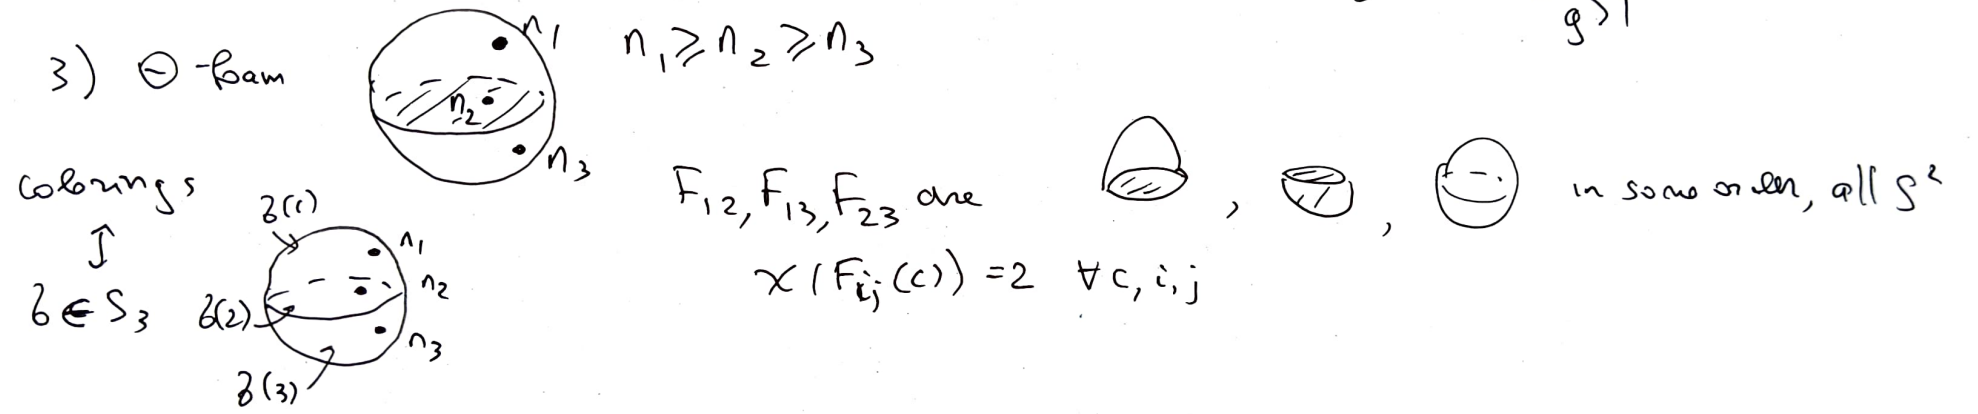 g>1
3) Θ-foam n₁ n₂ n₃ n₁ ⩾ n₂ ⩾ n₃
colorings
↕
σ ∈ S₃
σ(1) σ(2) σ(3) n₁ n₂ n₃
F₁₂, F₁₃, F₂₃ are , , in some order, all S²
χ(Fᵢⱼ(c)) = 2 ∀ c, i, j